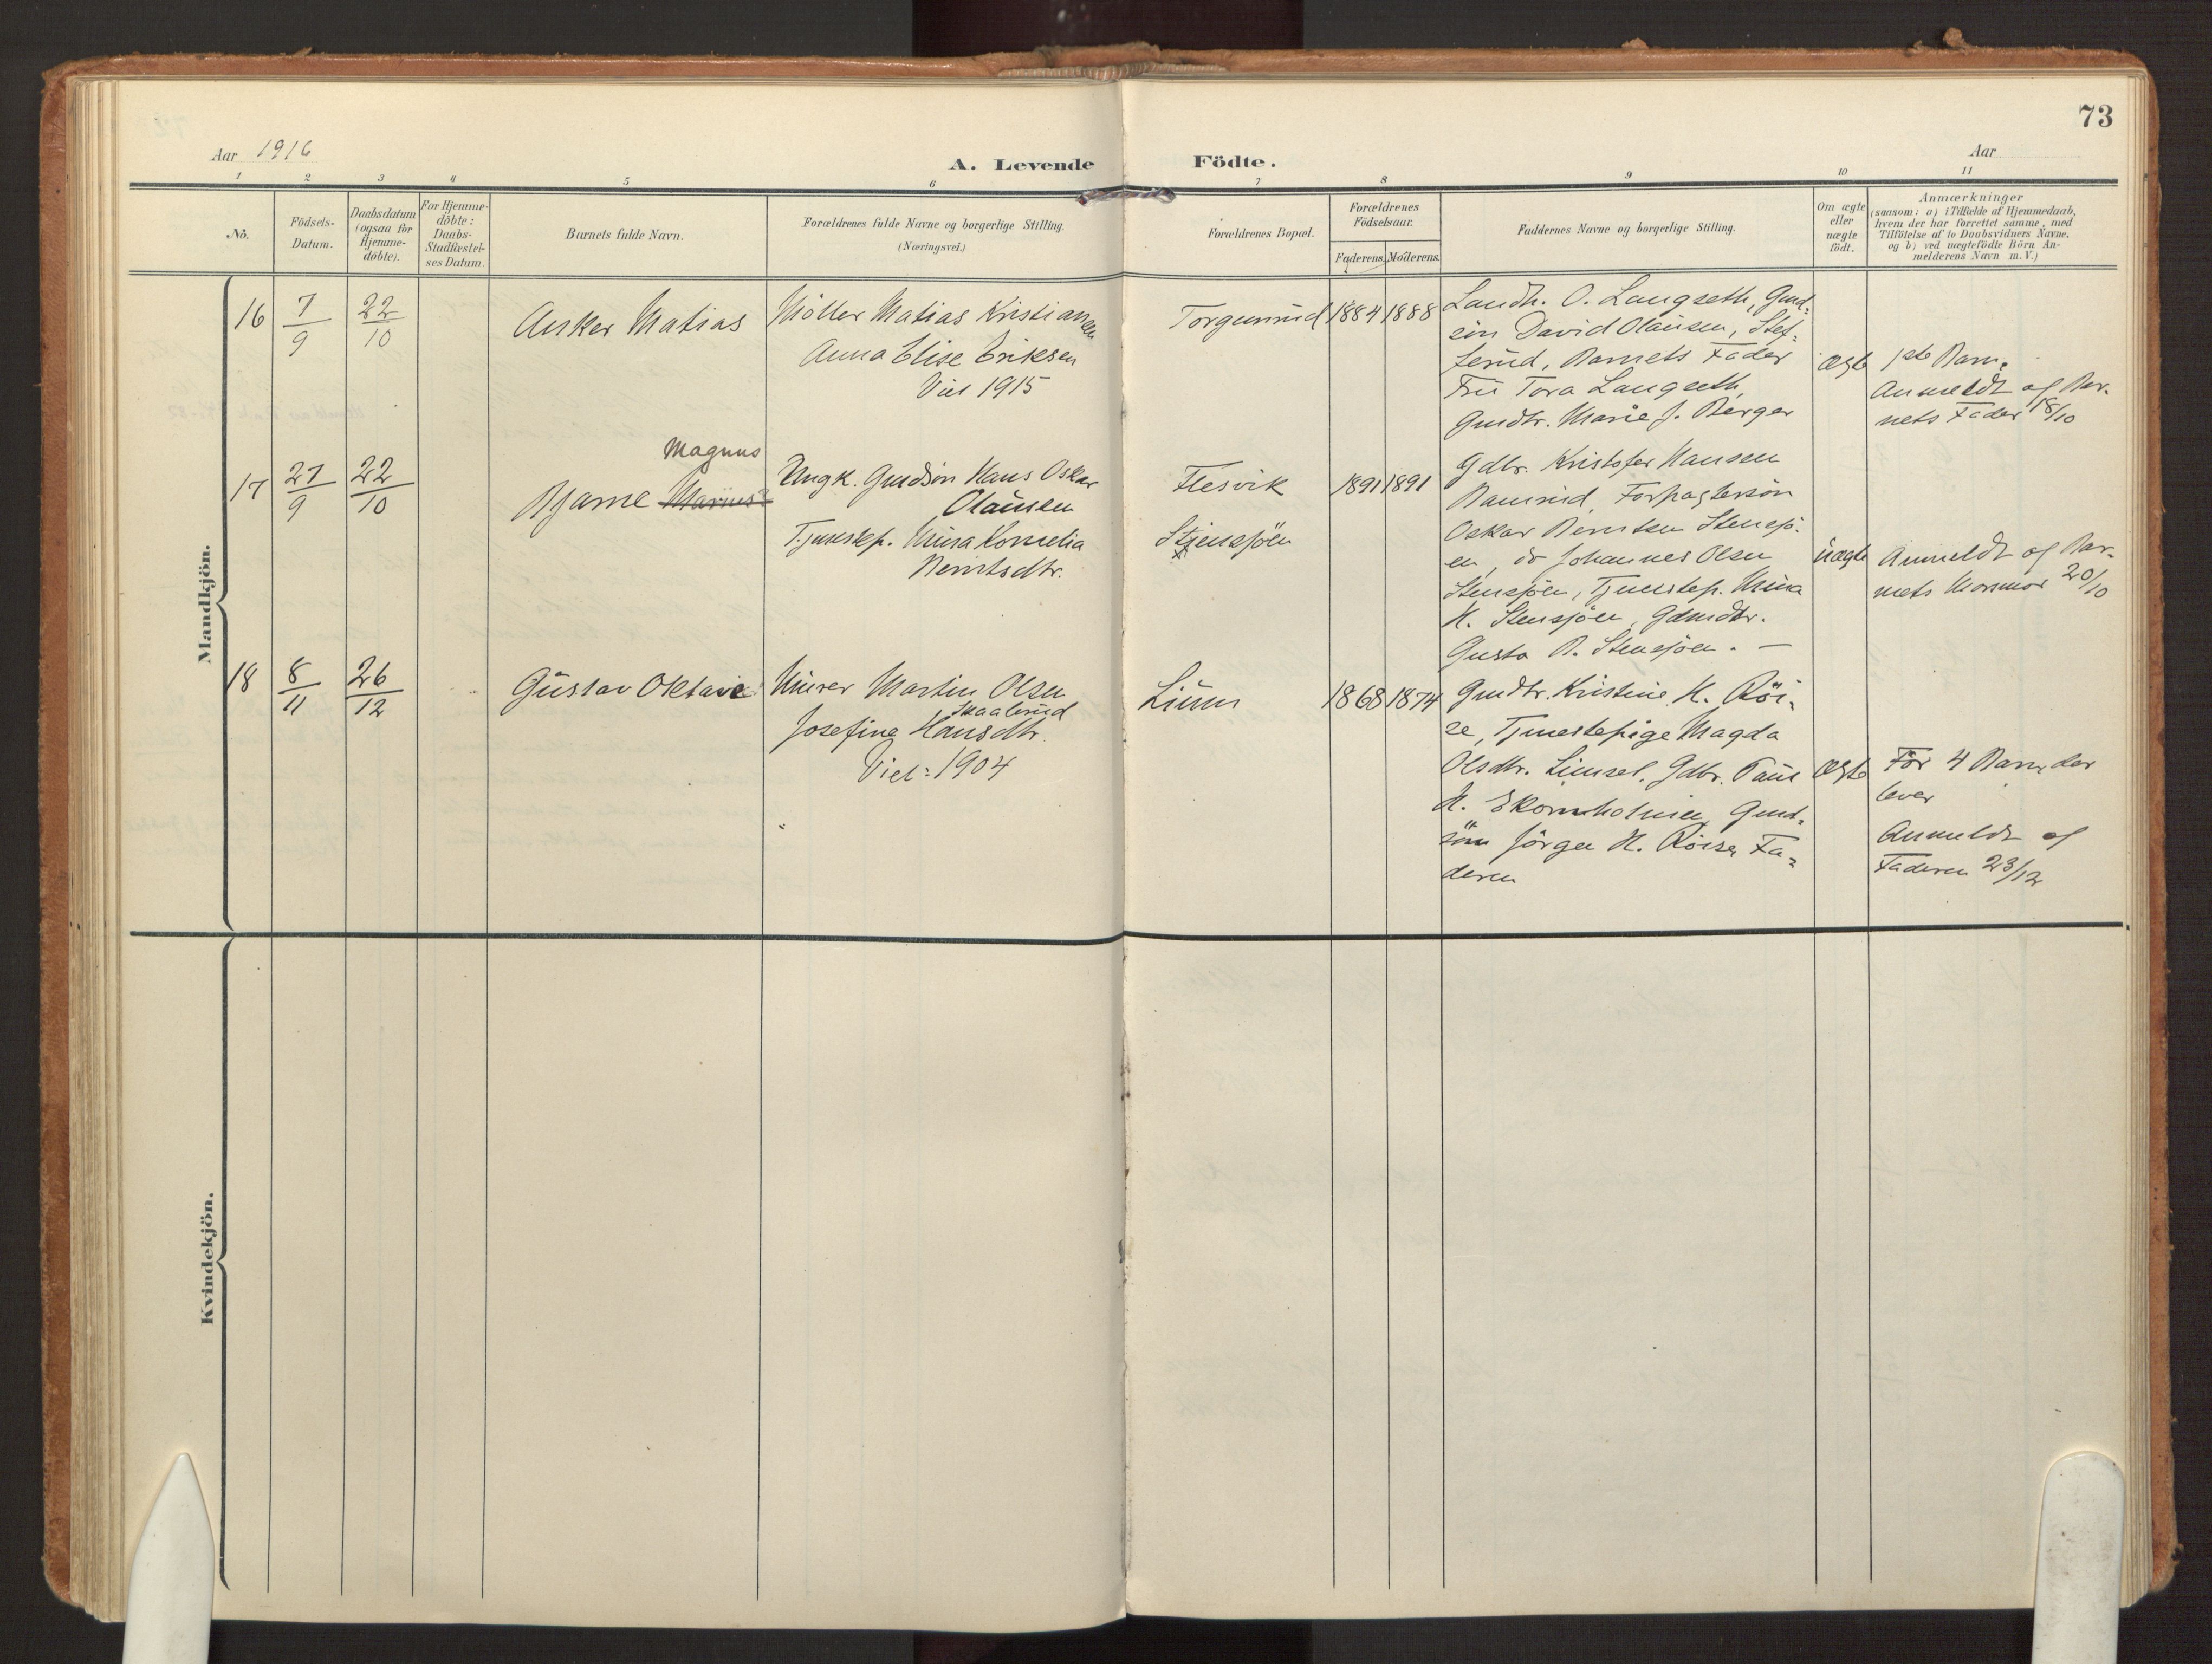 73
Aar 1916
A. Levende Födte.
Aar
1 2 3 4 5 6 7 8 9 10 11
No.
Födsels-
Datum.
Daabsdatum
(ogsaa for
Hjemme-
döbte).
For Hjemme-
döbte:
Daabs-
Stadfæstel-
ses Datum.
Barnets fulde Navn.
Forældrenes fulde Navne og borgerlige Stilling.
(Næringsvei.)
Forældrenes Bopæl.
Forældrenes
Födselsaar.
Faderens. Moderens.
Faddernes Navne og borgerlige Stilling.
Om ægte
eller
uægte
födt.
Anmærkninger
(saasom: a) i Tilfælde af Hjemmedaab,
hvem der har forrettet samme, med
Tilföielse af to Daabsvidners Navne,
og b) ved uægtefödte Börn An-
melderens Navn m. V.)
Mandkjön.
16
7/9
22/10
Anker Matias
Möller Matias Kristiansen
Anna Elise Eriksen
Viet 1915
Torgunrud
1884
1888
Landh. O. Langseth, Gmd-
sön David Olausen, Stef-
ferud, Barnets Fader
Fru Tora Langseth,
Gmdtr. Marie J. Berger
Ægte
1ste Barn.
Anmeldt af Bar-
nets Fader 18/10
17
27/9
22/10
Magnus
Bjarne Marius
Ungk. Gmdsön Hans Oskar
Olausen
Tjenestep. Mina Kornelia
Berntsdtr.
Flesvik
Stensjöen
1891
1891
Gdbr. Kristofer Hansen
Ramrud, Forpagtersön
Oskar Berntsen Stensjö-
en, do Johannes Olsen
Stensjöen, Tjenestep. Mina
K. Stensjöen, Gdmdtr.
Gusta B. Stensjöen. —
uægte
Anmeldt af Bar-
nets Mormor 20/10
18
8/11
26/12
Gustav Oktav
Murer Martin Olsen
Skaalerud
Josefine Hansdtr.
Viet: 1904
Lium
1868
1874
Gmdtr. Kristine H. Röi-
se, Tjenestepige Magda
Olsdtr. Limsel. Gdbr. Paul
H. Ekornholmen, Gmd-
sön Jörgen H. Röise, Fa-
deren
Ægte
Før 4 Barn, der
lever
Anmeldt af
Faderen 23/12
Kvindekjön.